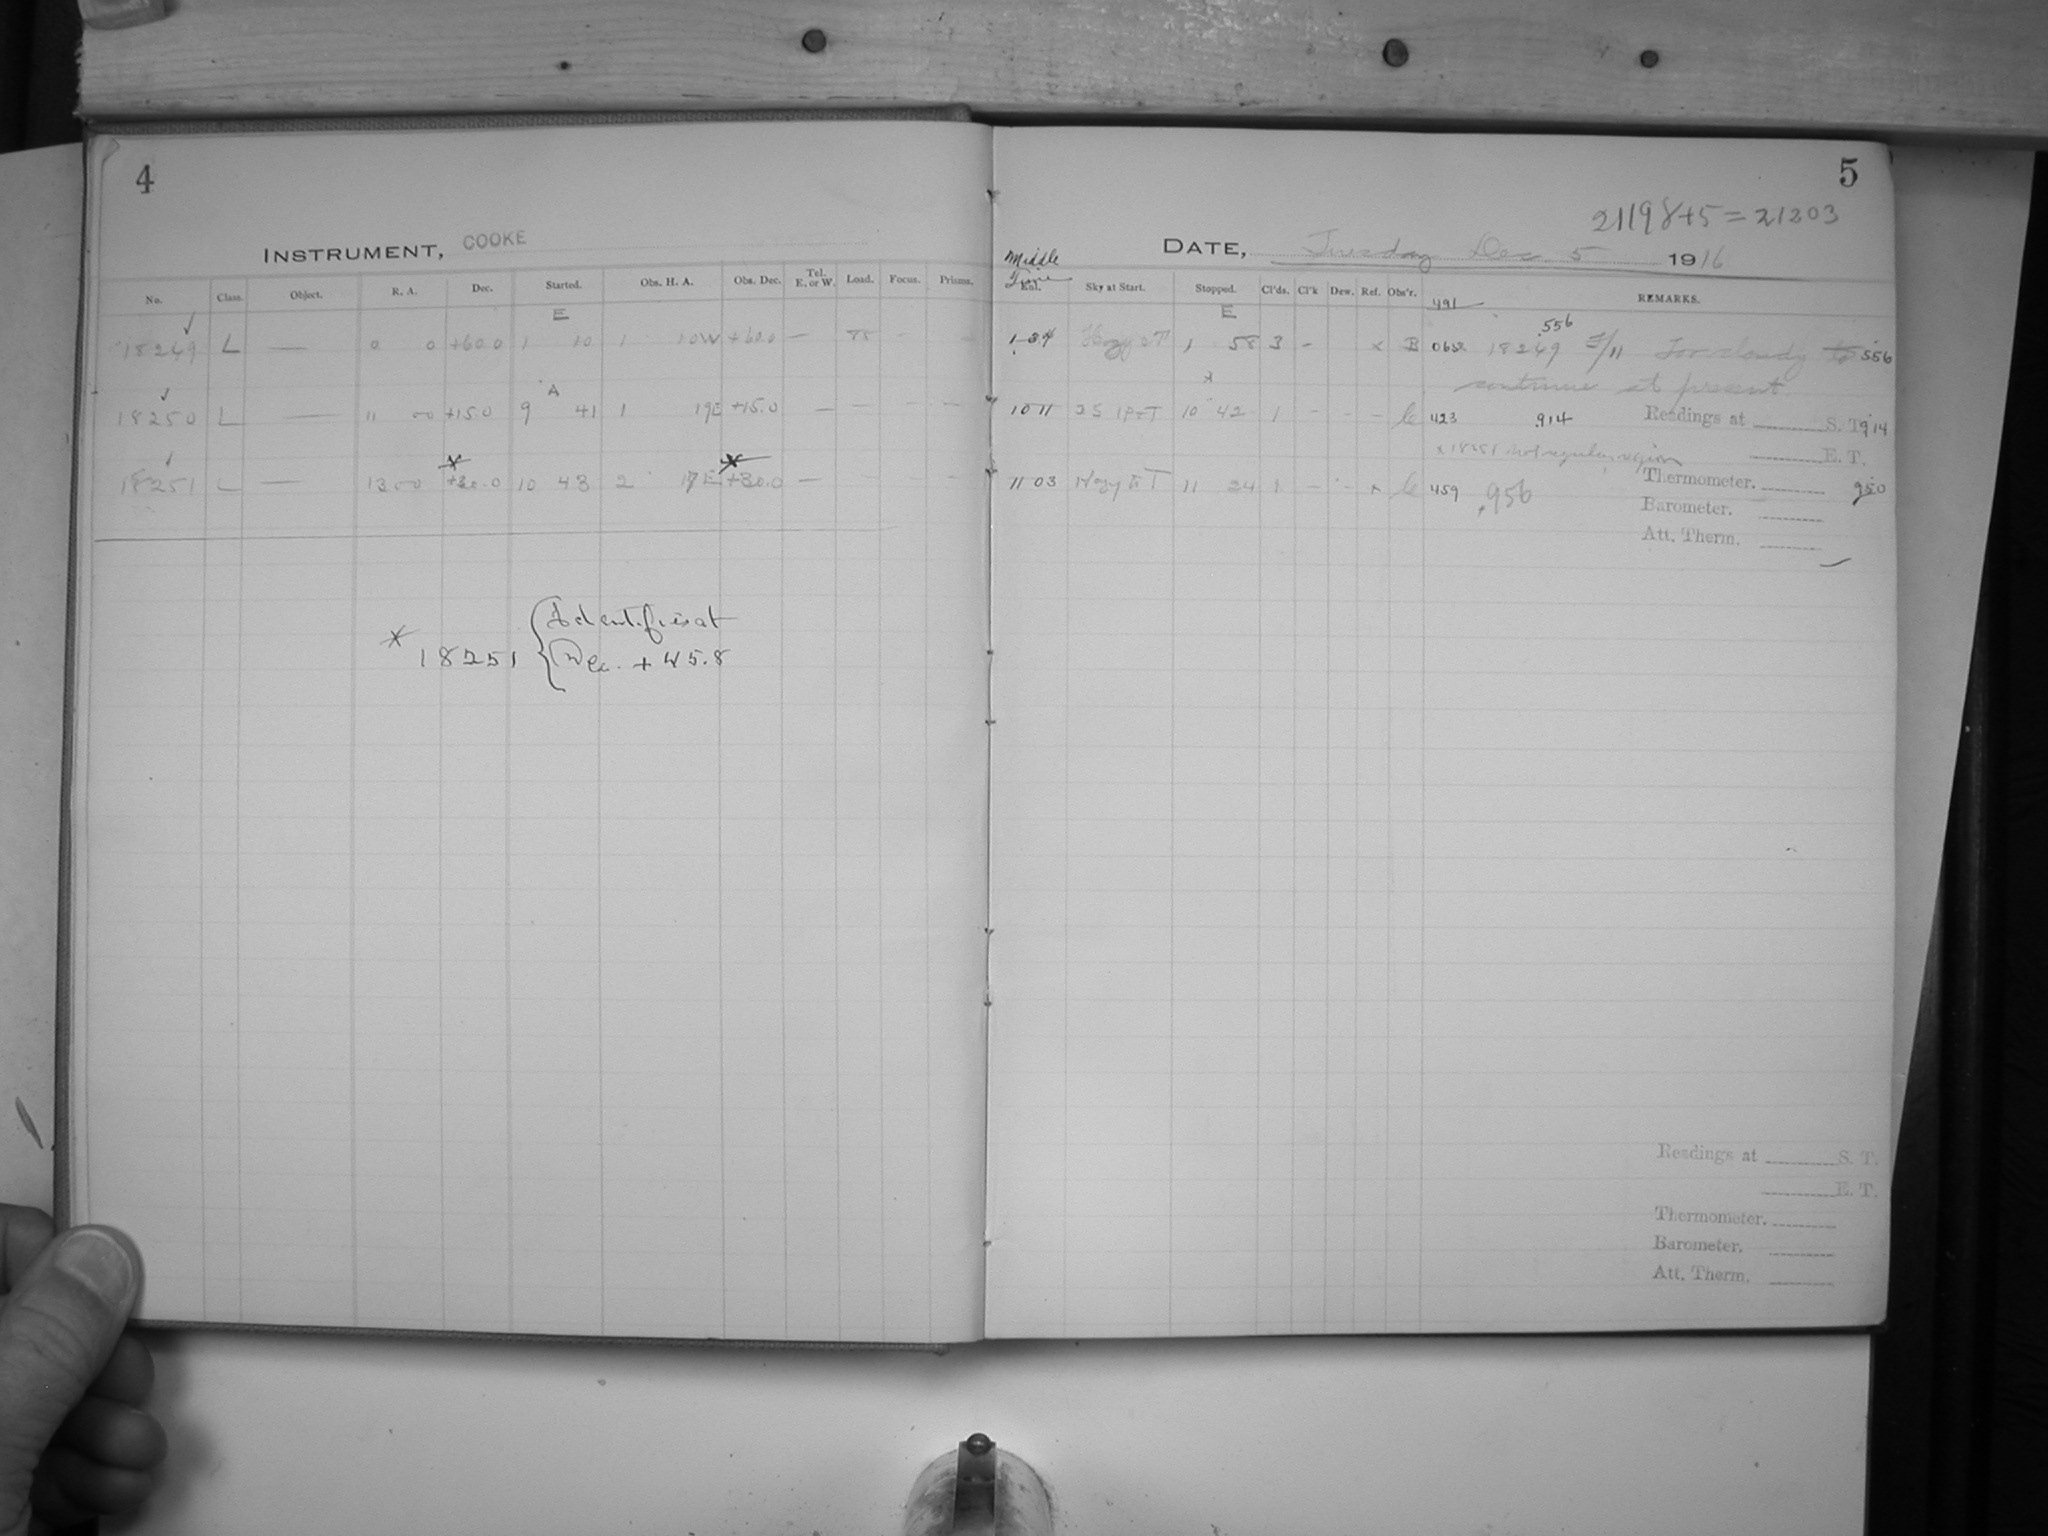 4
INSTRUMENT, COOKE
No. Class. Object. R. A. Dec. Started. Obs. H. A. Obs. Dec. Tel. E. or W. Load. Focus. Prisms.
E
18249 L — 0 0 +60.0 1 10 1 10W +60.0 — —
A
18250 L — 11 00 +15.0 9 41 1 19E +15.0 — — — —
18251 L — 13 00 +30.0 10 43 2 17E +30.0 — — — —
* 18251
Dec. + 45.8
5
21198+5=21203
DATE, Tuesday Dec 5 1916
Middle
Time
Sky at Start. Stopped. Cl'ds. Cl'k Dew. Ref. Obs'r. 491 REMARKS.
E
556
Hazy at T 1 58 3 - x B 18249 Too cloudy to 556
continue at present
10 11 10 42 1 - - - 423 914 Readings at S. T. 914
x 18251 not regular region E. T.
Thermometer. 950
11 03 Hazy to T 11 24 1 - - x 459 956
Barometer.
Att. Therm.
Readings at S. T.
E. T.
Thermometer.
Barometer.
Att. Therm.